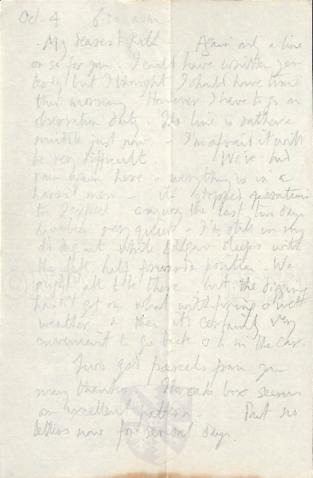 Oct. 4 6.30 a.m.
My dearest Again only a line
or so for you. I could have written yes-
terday but I thought I should have time
this morning. However I have to go on
observation duty. The line is rather a
muddle just now - I'm afraid it will
be very difficult. We've had
rain here & everything is in a
horrid mess - it's stopped operations
to anyway the last two days
have been very quiet - I'm still in my
dug out while sleeps with
the left half forward position. We
might all be there but the digging
hasn't got on what with & wet
weather & then it's certainly very
convenient to go back in the car.
Two good parcels from you
many thanks. The box seems
an excellent pattern. But no
letters now for several days.